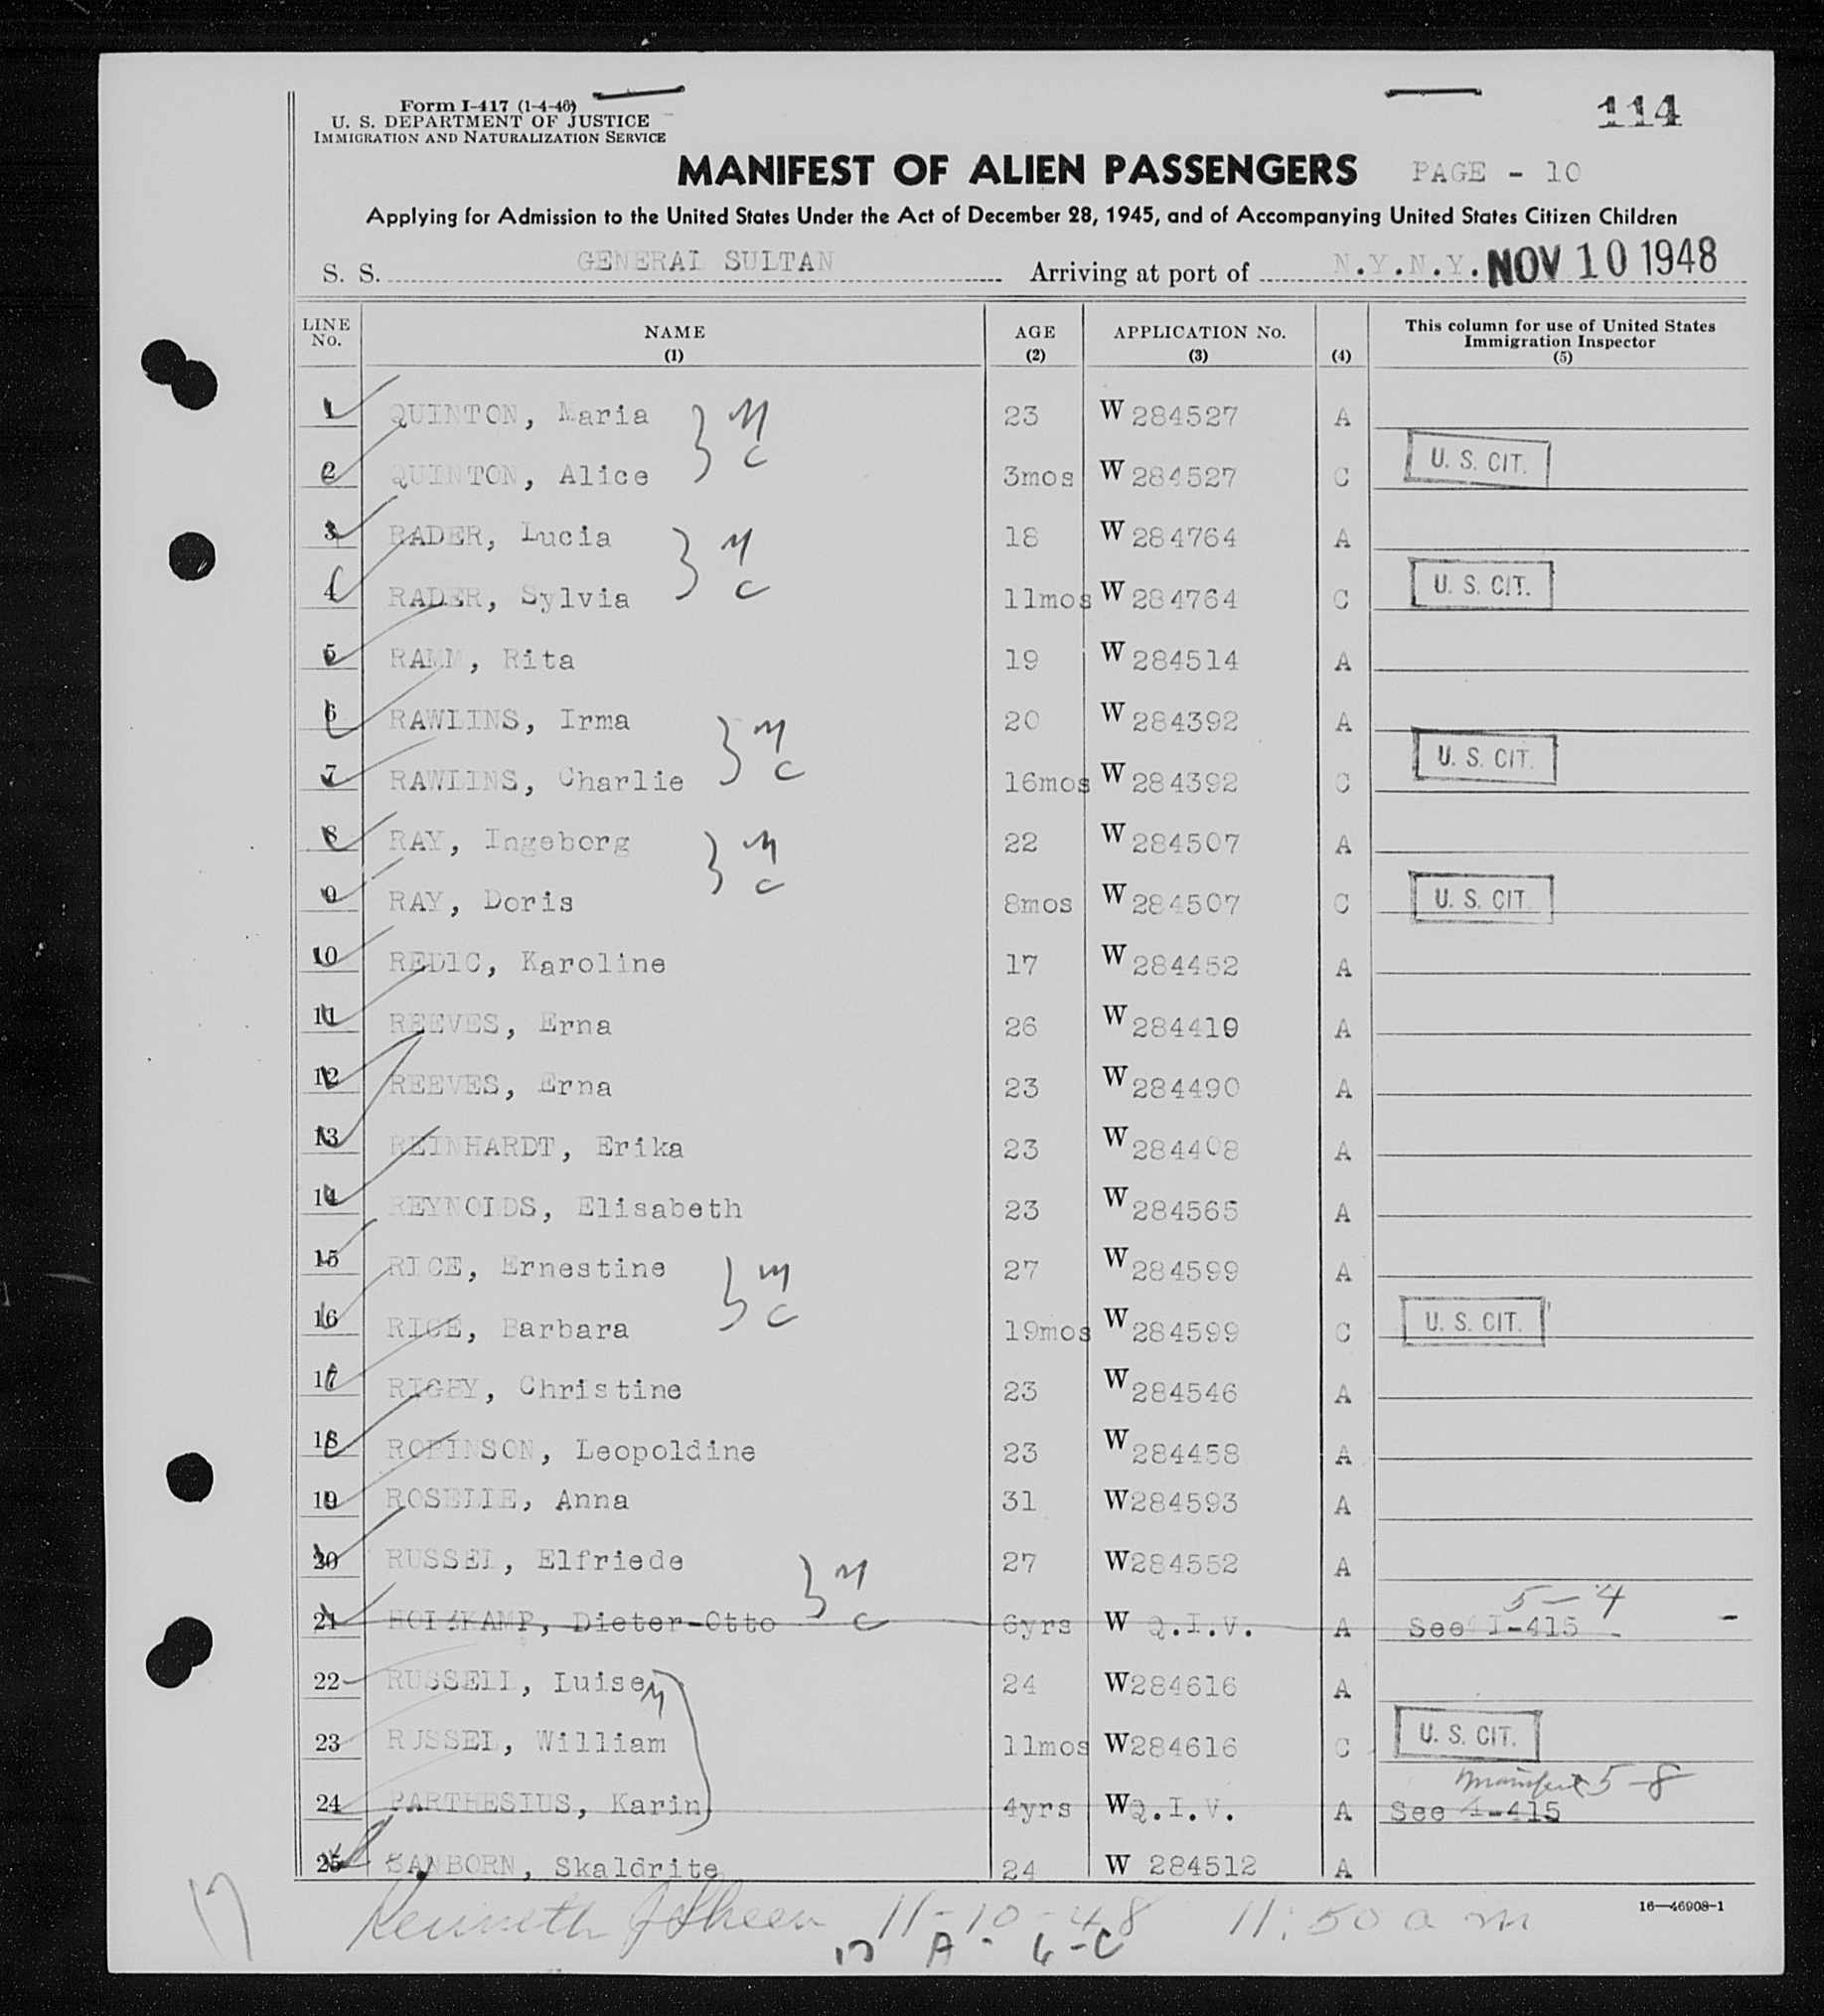 Form I-417 (1-4-46)
U. S. DEPARTMENT OF JUSTICE
IMMIGRATION AND NATURALIZATION SERVICE
114
MANIFEST OF ALIEN PASSENGERS PAGE - 10
Applying for Admission to the United States Under the Act of December 28, 1945, and of Accompanying United States Citizen Children
S. S. GENERAL SULTAN Arriving at port of N.Y.N.Y. NOV 10 1948
LINE No. NAME (1) AGE (2) APPLICATION No. (3) (4) This column for use of United States Immigration Inspector (5)
1 QUINTON, Maria M 23 W 284527 A
2 QUINTON, Alice C 3mos W 284527 C U. S. CIT.
3 RADER, Lucia M 18 W 284764 A
4 RADER, Sylvia C 11mos W 284764 C U. S. CIT.
5 RAMM, Rita 19 W 284514 A
6 RAWLINS, Irma M 20 W 284392 A
7 RAWLINS, Charlie C 16mos W 284392 C U. S. CIT.
8 RAY, Ingeborg M 22 W 284507 A
9 RAY, Doris C 8mos W 284507 C U. S. CIT.
10 REDIC, Karoline 17 W 284452 A
11 REEVES, Erna 26 W 284419 A
12 REEVES, Erna 23 W 284490 A
13 REINHARDT, Erika 23 W 284408 A
14 REYNOLDS, Elisabeth 23 W 284565 A
15 RICE, Ernestine M 27 W 284599 A
16 RICE, Barbara C 19mos W 284599 C U. S. CIT.
17 RIGBY, Christine 23 W 284546 A
18 ROBINSON, Leopoldine 23 W 284458 A
19 ROSELLE, Anna 31 W284593 A
20 RUSSEL, Elfriede M 27 W284552 A
21 HOLZKAMP, Dieter-Otto C 6yrs W Q.I.V. A See I-415 5-4
22 RUSSELL, Luise M 24 W284616 A
23 RUSSEL, William 11mos W284616 C U. S. CIT.
24 PARTHESIUS, Karin 4yrs WQ.I.V. A See I-415 manifest 5-8
25 SANBORN, Skaldrite 24 W 284512 A
16—46908-1
Kenneth 11-10-48 11:50 am
A - 6-C